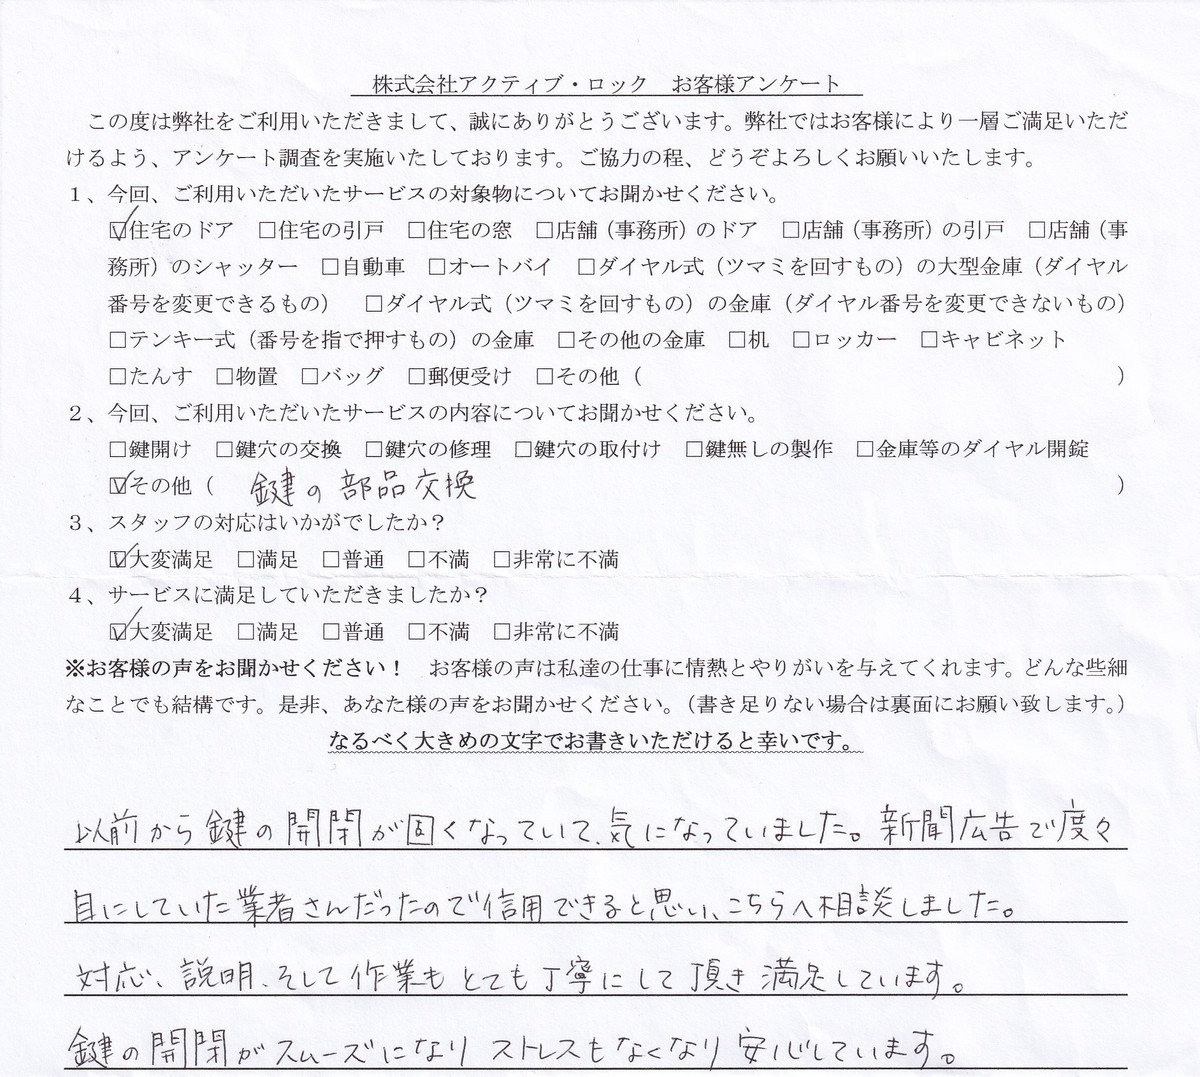 株式会社アクティブ・ロック　お客様アンケート
この度は弊社をご利用いただきまして、誠にありがとうございます。弊社ではお客様により一層ご満足いただ
けるよう、アンケート調査を実施いたしております。ご協力の程、どうぞよろしくお願いいたします。
１、今回、ご利用いただいたサービスの対象物についてお聞かせください。
☑住宅のドア　□住宅の引戸　□住宅の窓　□店舗（事務所）のドア　□店舗（事務所）の引戸　□店舗（事
務所）のシャッター　□自動車　□オートバイ　□ダイヤル式（ツマミを回すもの）の大型金庫（ダイヤル
番号を変更できるもの）　□ダイヤル式（ツマミを回すもの）の金庫（ダイヤル番号を変更できないもの）
□テンキー式（番号を指で押すもの）の金庫　□その他の金庫　□机　□ロッカー　□キャビネット
□たんす　□物置　□バッグ　□郵便受け　□その他（　　　）
２、今回、ご利用いただいたサービスの内容についてお聞かせください。
□鍵開け　□鍵穴の交換　□鍵穴の修理　□鍵穴の取付け　□鍵無しの製作　□金庫等のダイヤル開錠
☑その他（　鍵の部品交換　）
３、スタッフの対応はいかがでしたか？
☑大変満足　□満足　□普通　□不満　□非常に不満
４、サービスに満足していただきましたか？
☑大変満足　□満足　□普通　□不満　□非常に不満
※お客様の声をお聞かせください！　お客様の声は私達の仕事に情熱とやりがいを与えてくれます。どんな些細
なことでも結構です。是非、あなた様の声をお聞かせください。（書き足りない場合は裏面にお願い致します。）
なるべく大きめの文字でお書きいただけると幸いです。
以前から鍵の開閉が固くなっていて、気になっていました。新聞広告で度々
目にしていた業者さんだったので信用できると思い、こちらへ相談しました。
対応、説明、そして作業もとても丁寧にして頂き満足しています。
鍵の開閉がスムーズになりストレスもなくなり安心しています。